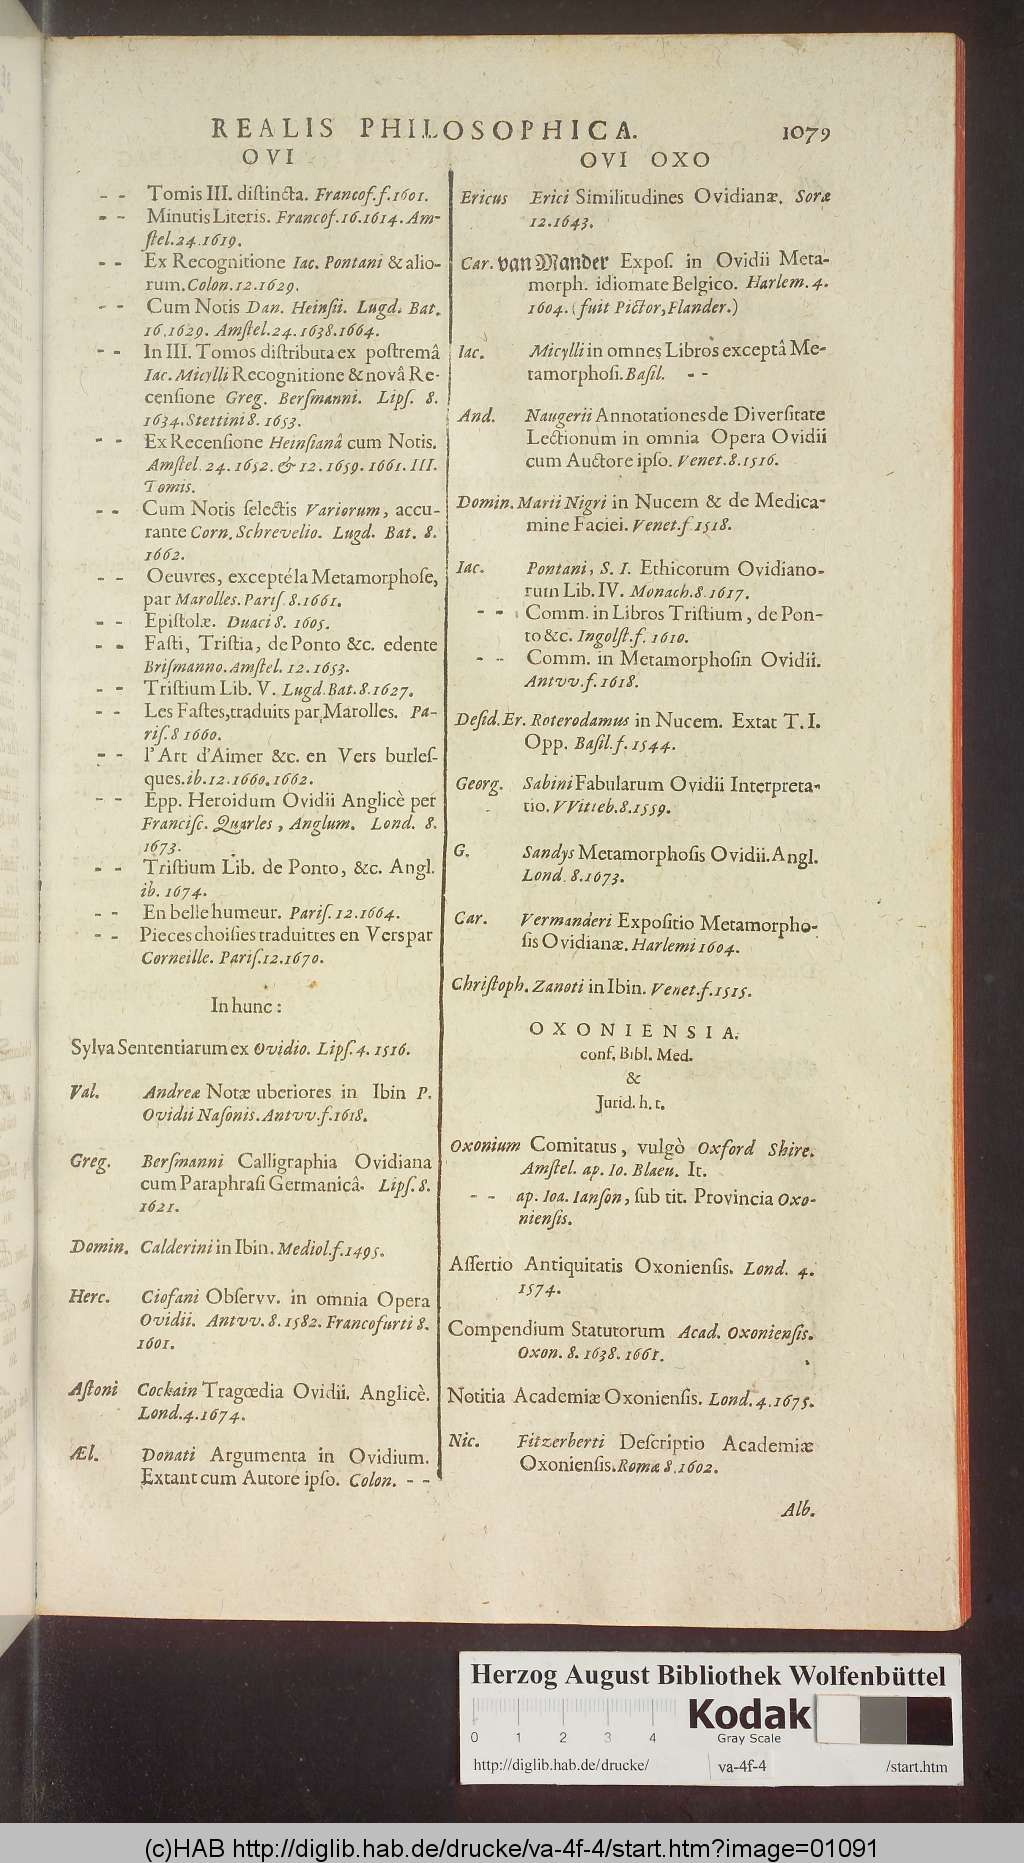 REALIS PHILOSOPHICA. 1079
OVI
- - Tomis III. diſtincta. Francof. f. 1601.
- - Minutis Literis. Francof. 16. 1614. Am-
ſtel. 24. 1619.
- - Ex Recognitione Iac. Pontani & alio-
rum. Colon. 12. 1629.
- - Cum Notis Dan. Heinſii. Lugd. Bat.
16. 1629. Amſtel. 24. 1638. 1664.
- - In III. Tomos diſtributa ex poſtremâ
Iac. Micylli Recognitione & novâ Re-
cenſione Greg. Berſmanni. Lipſ. 8.
1634. Stettini 8. 1653.
- - Ex Recenſione Heinſianâ cum Notis.
Amſtel. 24. 1652. & 12. 1659. 1661. III.
Tomis.
- - Cum Notis ſelectis Variorum, accu-
rante Corn. Schrevelio. Lugd. Bat. 8.
1662.
- - Oeuvres, excepté la Metamorphoſe,
par Marolles. Pariſ. 8. 1661.
- - Epiſtolæ. Duaci 8. 1605.
- - Faſti, Triſtia, de Ponto &c. edente
Briſmanno. Amſtel. 12. 1653.
- - Triſtium Lib. V. Lugd. Bat. 8. 1627.
- - Les Faſtes, traduits par Marolles. Pa-
riſ. 8 1660.
- - l'Art d'Aimer &c. en Vers burleſ-
ques. ib. 12. 1660. 1662.
- - Epp. Heroidum Ovidii Anglicè per
Franciſc. Quarles, Anglum. Lond. 8.
1673.
- - Triſtium Lib. de Ponto, &c. Angl.
ib. 1674.
- - En belle humeur. Pariſ. 12. 1664.
- - Pieces choiſies traduittes en Vers par
Corneille. Pariſ. 12. 1670.
In hunc:
Sylva Sententiarum ex Ovidio. Lipſ. 4. 1516.
Val. Andreæ Notæ uberiores in Ibin P.
Ovidii Naſonis. Antvv. f. 1618.
Greg. Berſmanni Calligraphia Ovidiana
cum Paraphraſi Germanicâ. Lipſ. 8.
1621.
Domin. Calderini in Ibin. Mediol. f. 1495.
Herc. Ciofani Obſervv. in omnia Opera
Ovidii. Antvv. 8. 1582. Francofurti 8.
1601.
Aſtoni Cockain Tragœdia Ovidii. Anglicè.
Lond. 4. 1674.
Æl. Donati Argumenta in Ovidium.
Extant cum Autore ipſo. Colon. - -
OVI OXO
Ericus Erici Similitudines Ovidianæ. Soræ
12. 1643.
Car. van Mander Expoſ. in Ovidii Meta-
morph. idiomate Belgico. Harlem. 4.
1604. (fuit Pictor, Flander.)
Iac. Micylli in omnes Libros exceptâ Me-
tamorphoſi. Baſil. - -
And. Naugerii Annotationes de Diverſitate
Lectionum in omnia Opera Ovidii
cum Auctore ipſo. Venet. 8. 1516.
Domin. Marii Nigri in Nucem & de Medica-
mine Faciei. Venet. f 1518.
Iac. Pontani, S. I. Ethicorum Ovidiano-
rum Lib. IV. Monach. 8. 1617.
- - Comm. in Libros Triſtium, de Pon-
to &c. Ingolſt. f. 1610.
- - Comm. in Metamorphoſin Ovidii.
Antvv. f. 1618.
Deſid. Er. Roterodamus in Nucem. Extat T. I.
Opp. Baſil. f. 1544.
Georg. Sabini Fabularum Ovidii Interpreta-
tio. VVitteb. 8. 1559.
G. Sandys Metamorphoſis Ovidii. Angl.
Lond. 8. 1673.
Car. Vermanderi Expoſitio Metamorpho-
ſis Ovidianæ. Harlemi 1604.
Chriſtoph. Zanoti in Ibin. Venet. f. 1515.
OXONIENSIA.
conf. Bibl. Med.
&
Jurid. h. t.
Oxonium Comitatus, vulgò Oxford Shire.
Amſtel. ap. Io. Blaeu. It.
- - ap. Ioa. Ianſon, ſub tit. Provincia Oxo-
nienſis.
Aſſertio Antiquitatis Oxonienſis. Lond. 4.
1574.
Compendium Statutorum Acad. Oxonienſis.
Oxon. 8. 1638. 1661.
Notitia Academiæ Oxonienſis. Lond. 4. 1675.
Nic. Fitzerberti Deſcriptio Academiæ
Oxonienſis. Romæ 8. 1602.
Alb.
Herzog August Bibliothek Wolfenbüttel
0 1 2 3 4
Kodak
Gray Scale
http://diglib.hab.de/drucke/ va-4f-4 /start.htm
(c)HAB http://diglib.hab.de/drucke/va-4f-4/start.htm?image=01091